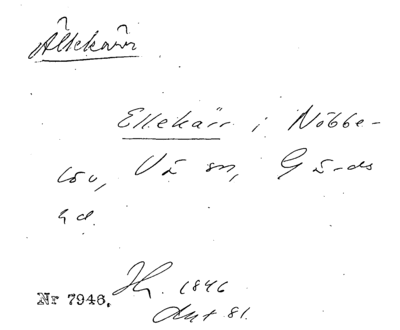 Ällekärr
Ellekärr i Nöbbe-
löv, Vä sn, Gärds
hd.
Nr 7946. 1846
akt 81.